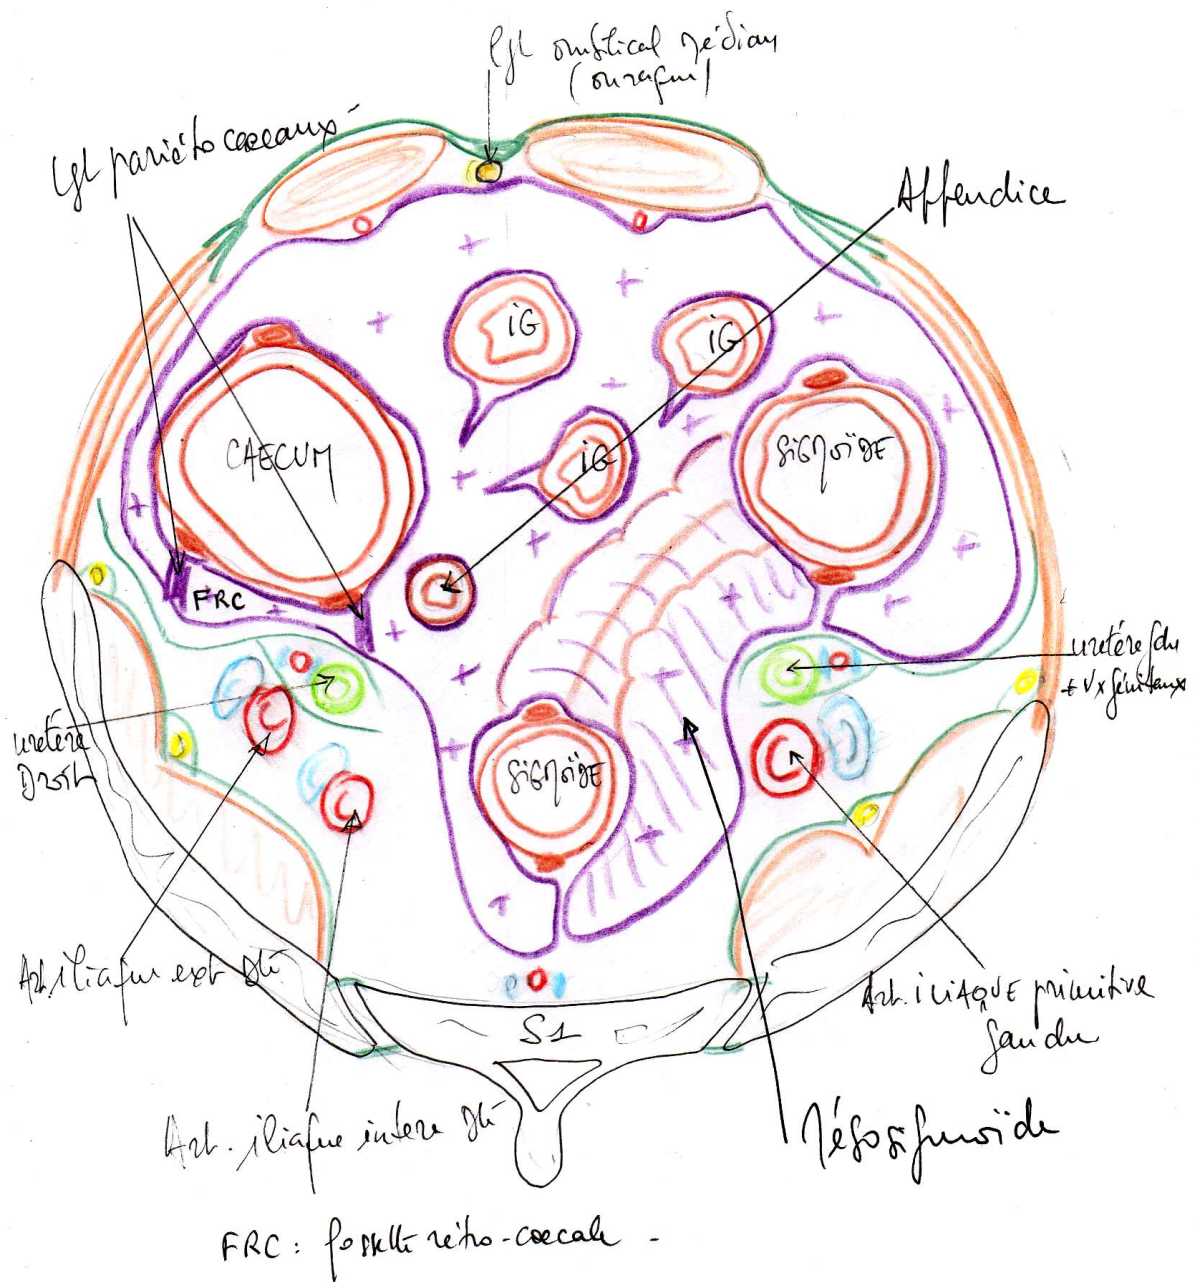 lgt ombilical médian
(ouraque)
lgt pariéto caecaux
Appendice
iG
iG
iG
CAECUM
SiGMOÏDE
FRC
uretère gche
+ Vx génitaux
uretère
Droit
SiGMOÏDE
Art. iliaque ext Dte
S1
Art. iLiAQUE primitive
gauche
Art. iliaque interne Dte
Mésosigmoïde
FRC : fossette rétro-coecale -